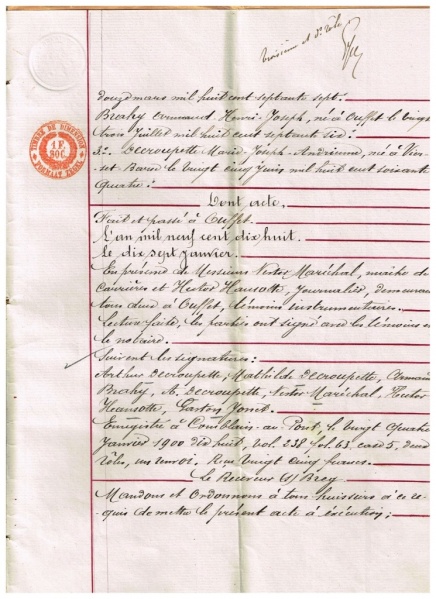 troisième et dr rôle
TIMBRE DE DIMENSION
1 F.
80 C.
douze mars mil huit cent septante sept.
Brahy Armand Henri Joseph, né à Ouffet le vingt
trois Juillet mil huit cent septante six.
3° Decroupette Marie-Joseph-Andrienne, né à Vier-
set Barse le vingt cinq Juin mil huit cent soixante
quatre.
Dont acte,
Fait et passé à Ouffet.
L'an mil neuf cent dix huit.
Le dix sept Janvier.
En présence de Messieurs Victor Maréchal, maître de
carrières et Hector Hansotte, Journalier, demeurant
tous deux à Ouffet, témoins instrumentaires.
Lecture faite, les parties ont signé avec les témoins et
le notaire.
Suivent les signatures:
Arthur Decroupette, Mathilde Decroupette, Armand
Brahy, A. Decroupette, Victor Maréchal, Hector
Hansotte, Gaston Jonet.
Enregistré à Comblain-au-Pont, le vingt quatre
Janvier 1900 dix huit, vol. 238 fol. 63, case 5, deux
rôles, un renvoi. Reçu vingt cinq francs.
Le Receveur (s) Broy
Mandons et Ordonnons à tous huissiers à ce re-
quis de mettre le présent acte à exécution;